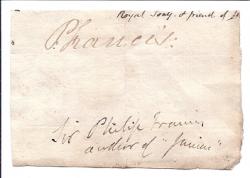 Royal Socy. & friend of
P Francis.
Sir Philip Francis
author of "Junius"